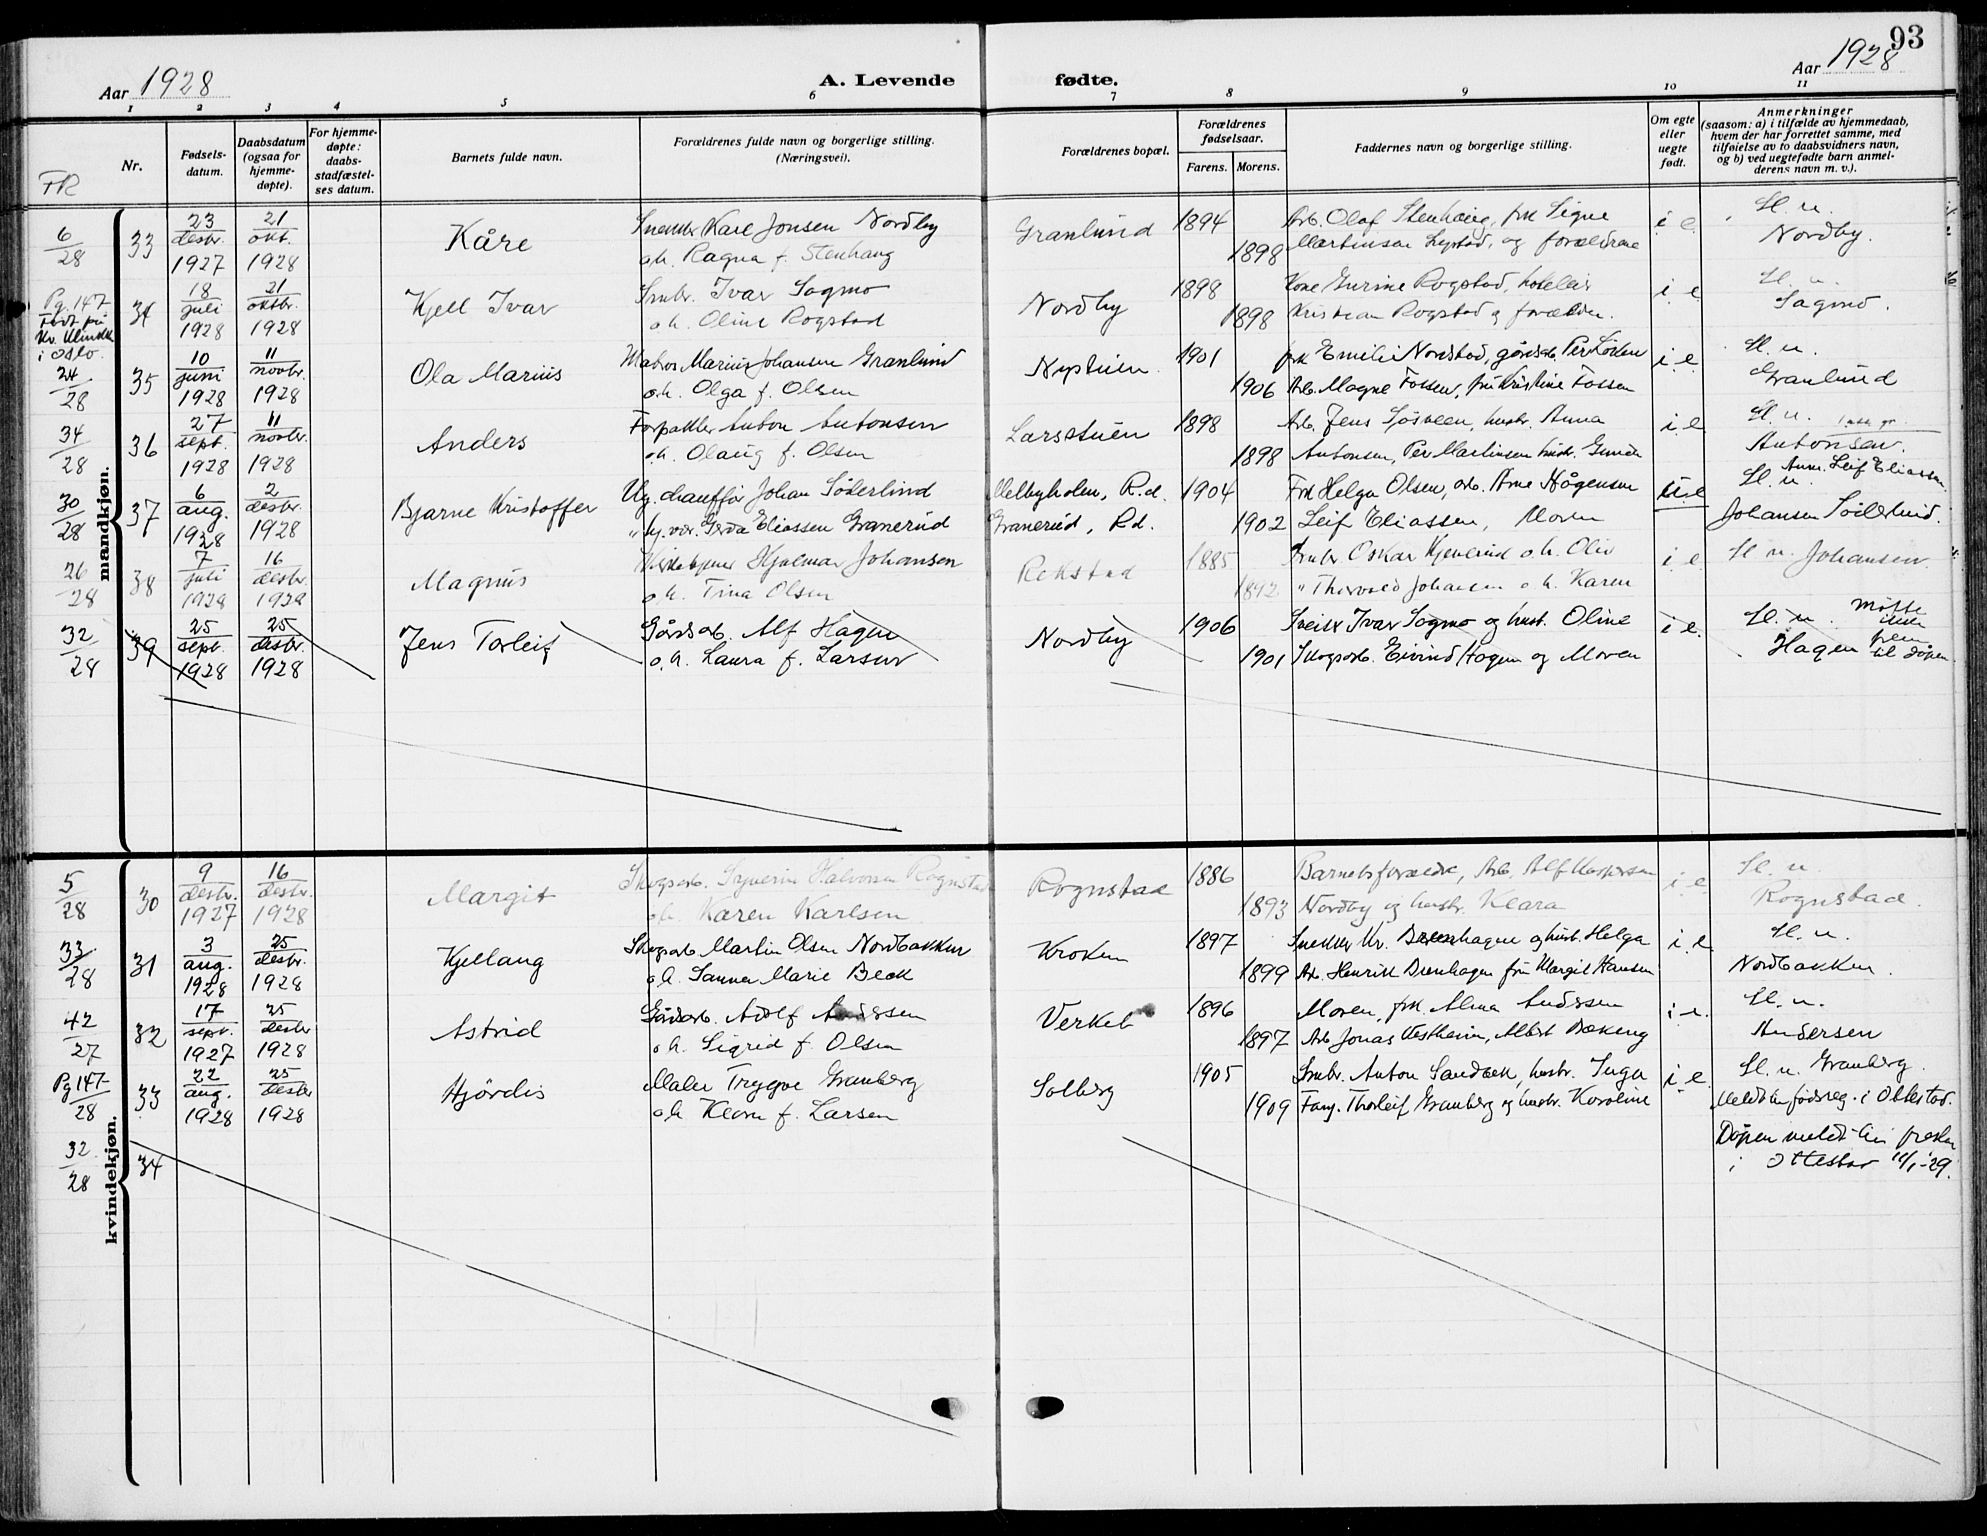 93
Aar 1928
A. Levende fødte.
Aar 1928
1 2 3 4 5 6 7 8 9 10 11
FR
Nr.
Fødsels-datum.
Daabsdatum (ogsaa for hjemme-døpte).
For hjemme-døpte: daabs-stadfæstel-ses datum.
Barnets fulde navn.
Forældrenes fulde navn og borgerlige stilling. (Næringsvei).
Forældrenes bopæl.
Forældrenes fødselsaar.
Farens. Morens.
Faddernes navn og borgerlige stilling.
Om egte eller uegte født.
Anmerkninger
(saasom: a) i tilfælde av hjemmedaab,
hvem der har forrettet samme, med
tilføielse av to daabsvidners navn,
og b) ved uegtefødte barn anmel-
derens navn m. v.).
mandkjøn.
6/28 33 23 desbr. 1927 21 okt. 1928 Kåre Snekker Kare Jonsen Nordby
o.h. Ragna f. Stenhaug
Granlund 1894 1898 Arb. Olaf Stenhaug, frk Signe
Martinsen, og forældrene
i e. Nordby.
Pg. 147 født på Kv. Klinikk i Oslo.
34 18 juli 1928 21 oktbr. 1928 Kjell Ivar Smbr. Ivar Sagmo
o.h. Oline Rogstad
Nordby 1898 1898 Kone Gurine Rogstad,
Kristian Rogstad og foreldr.
i e Sagmo.
24/28 35 10 juni 1928 11 novbr. 1928 Ola Marius Matros Marius Johansen Granlund
o.h. Olga f. Olsen
Nystuen. 1901 1906 frk Emilie Nordstad, gårdsarb. Per
Arb. Magne Fossen, fru Kristine Fossen
i e Granlund
34/28 36 27 sept. 1928 11 novbr. 1928 Anders Forpakter Anton Antonsen
o.h. Olaug f. Olsen
Larsstuen 1898 1898 Arb. Jens Sjøveen, hustr. Anna
Antonsen, Per Martinsen
i e Antonsen.
30/28 37 6 aug. 1928 2 desbr. 1928 Bjarne Kristoffer Ug. chauffør Johan Söderlind
Gerda Eliassen Granerud
Melbyholen, R.d.
Granerud, R.d.
1904 1902 Frk Helga Olsen, arb. Arne Hågensen
Leif Eliassen, Moren
u.e Anm. Leif Eliassen.
Johansen Söderlund.
26/28 38 7 juli 1928 16 desbr. 1928 Magnus Kirketjener Hjalmar Johansen
o.h. Tina Olsen
Rokstad 1885 1892 Smbr Oskar Kjeverud o.h. Oliv
" Thorvald Johansen o.h. Karen
i e Johansen
32/28 39 25 sept. 1928 25 desbr. 1928 Jens Torleif Gårdsarb. Alf Hagen
o.h. Laura f. Larsen
Nordby 1906 1901 Ivar Sagmo og hust. Oline
Skogsarb. Eivind Hagen og Moren
i e. Hagen Møtte ikke frem til dåpen
kvindekjøn.
5/28 30 9 desbr. 1927 16 desbr. 1928 Margit Skogsarb. Syverin Halvorsen Rognstad
o.h. Karen Karlsen
Rognstad 1886 1893 Barnets foreldre, Arb. Alf Kaspersen
Nordby og hustr. Klara
i e Rognstad.
33/28 31 3 aug. 1928 25 desbr. 1928 Kjellaug Skogsarb Martin Olsen Nordbakken
o.h. Sanna Marie Beck
Kroken 1897 1899 Snekker Kr. Brenhagen og hust. Helga
Arb. Henrik Brenhagen fru Margit Hansen
i e Nordbakken.
42/27 32 17 sept. 1927 25 desbr 1928 Astrid Gårdsarb. Adolf Andersen
o.h. Sigrid f. Olsen
Verket 1896 1897 Moren, frk. Alma Andersen
Arb Jonas Vestheim, Albert Brekeng
i e. Andersen
Pg 147/28 33 22 aug. 1928 25 desbr 1928 Hjørdis Maler Trygve Granberg
o.h Klara f. Larsen
Solberg 1905 1909 Smbr. Anton Sandbæk, hustr. Inga
Thorleif Granberg og hustr. Karoline
i e. Granberg.
Meldt til fødsreg. i Ottestad.
Dåpen meldt til presten
i Ottestad 11/1-29.
32/28 34